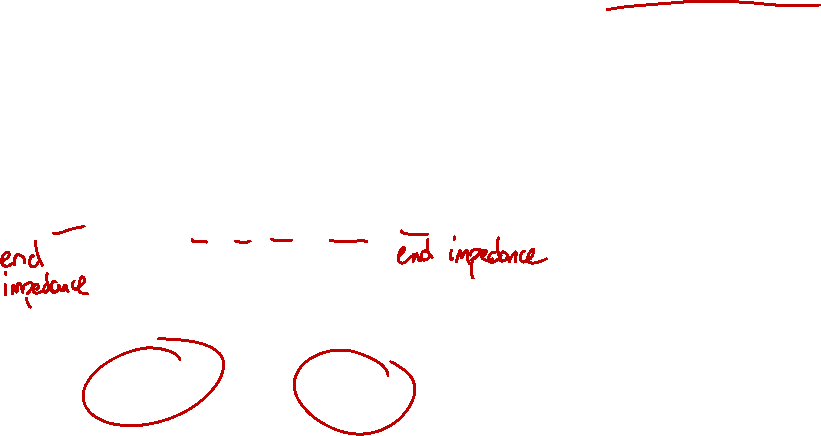 end
impedance
end impedance